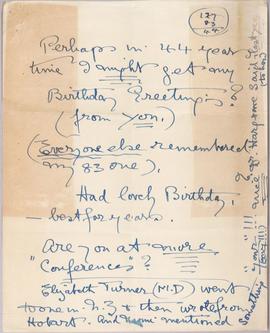 127
83
44
Perhaps in 44 year
time I might get my
Birthday Greetings
(from you.)
(Everyone else remembered
my 83 one).
Had lovely Birthday,
— best for years.
Are you at more
"Conferences"?
Elizabeth Turner (M.D) went
to one in N.Z & then wrote from
Hobart. And "mentioned
Something
"your"!!! nice